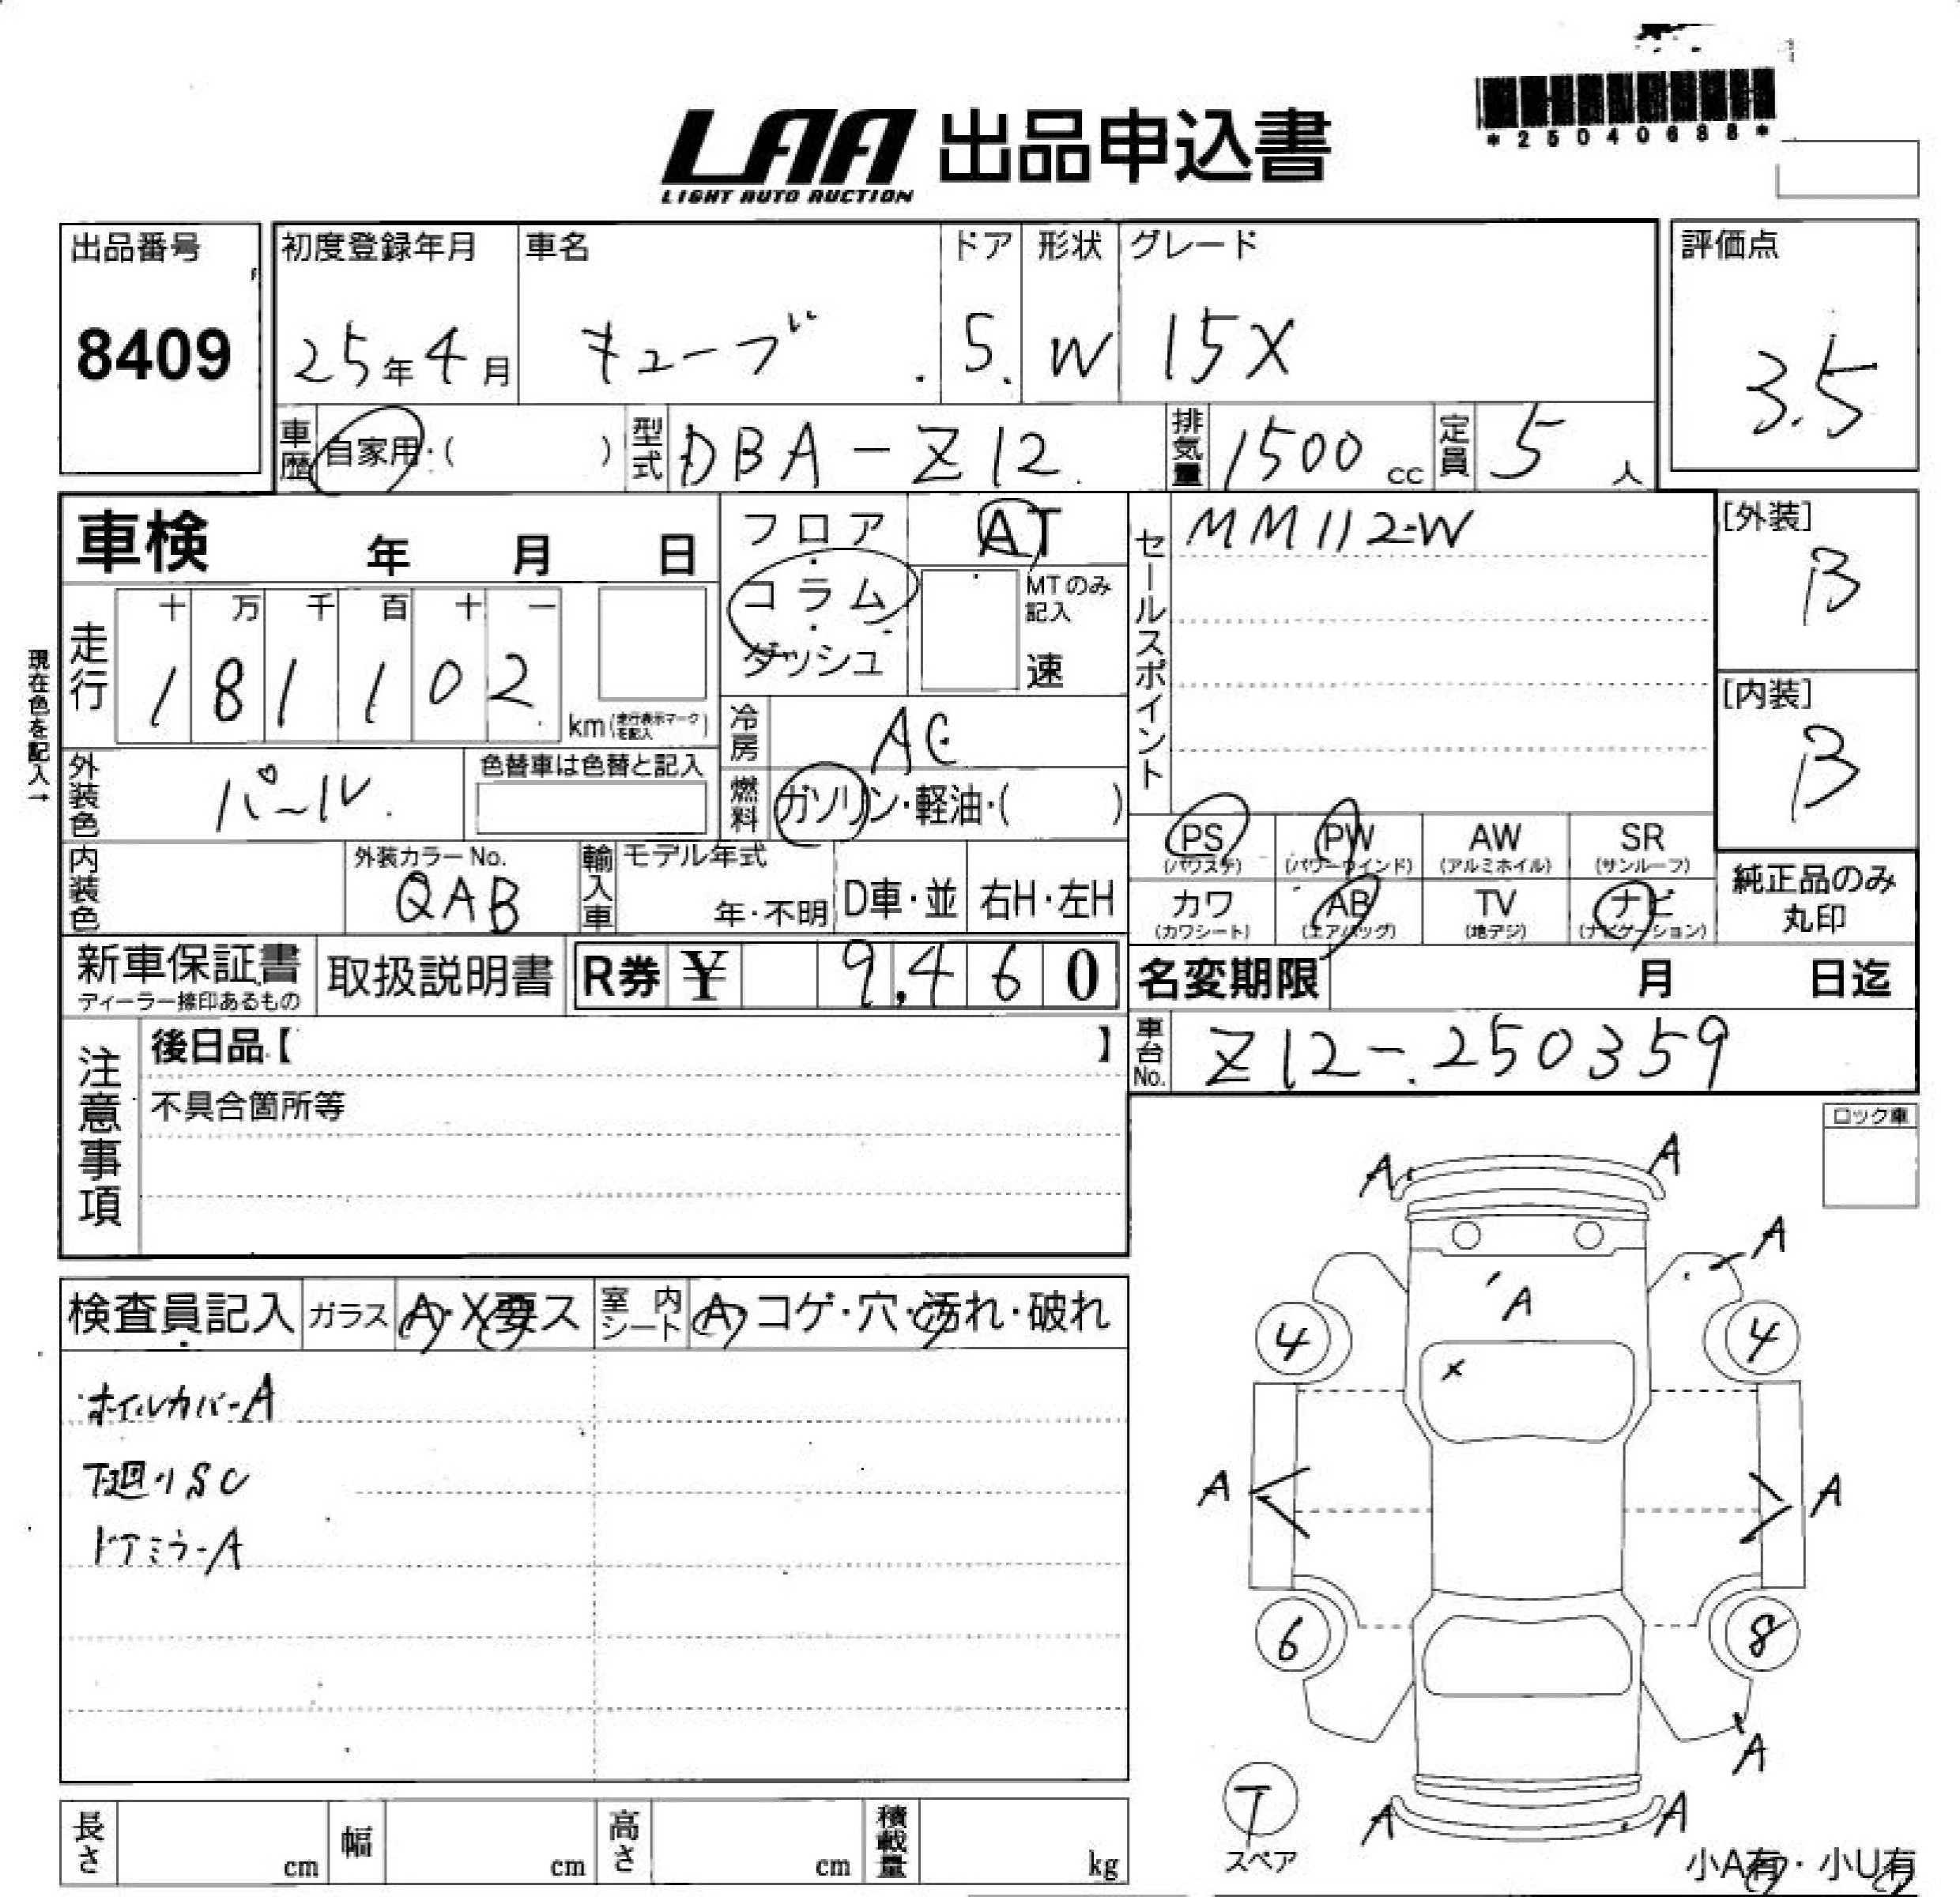 LAA 出品申込書
LIGHT AUTO AUCTION
*25040688*
出品番号
8409
初度登録年月
25年4月
車名
キューブ
ドア
5
形状
W
グレード
15X
評価点
3.5
車歴
自家用・( )
型式
DBA-Z12
排気量
1500 cc
定員
5 人
車検 年 月 日
フロア・コラム・ダッシュ
AT
MTのみ記入
速
セールスポイント
MM112-W
[外装]
B
[内装]
B
現在色を記入→
走行
十 万 千 百 十 一
1 8 1 1 0 2
km(走行表示マークを記入)
冷房
AC
外装色
パール
色替車は色替と記入
燃料
ガソリン・軽油・( )
PS
(パワステ)
PW
(パワーウインド)
AW
(アルミホイル)
SR
(サンルーフ)
カワ
(カワシート)
AB
(エアバッグ)
TV
(地デジ)
ナビ
(ナビゲーション)
純正品のみ
丸印
内装色
外装カラーNo.
QAB
輸入車
モデル年式
年・不明
D車・並
右H・左H
新車保証書
ディーラー捺印あるもの
取扱説明書
R券 ¥ 9,460
名変期限 月 日迄
車台No.
Z12-250359
注意事項
後日品【 】
不具合箇所等
ロック車
検査員記入
ガラス
A・X要ス
室内シート
A・コゲ・穴・汚れ・破れ
ホイルカバーA
下廻りSC
ドアミラーA
A
A
A
A
4
4
X
A
A
6
8
A
A
A
T
スペア
小A有・小U有
長さ cm
幅 cm
高さ cm
積載量 kg